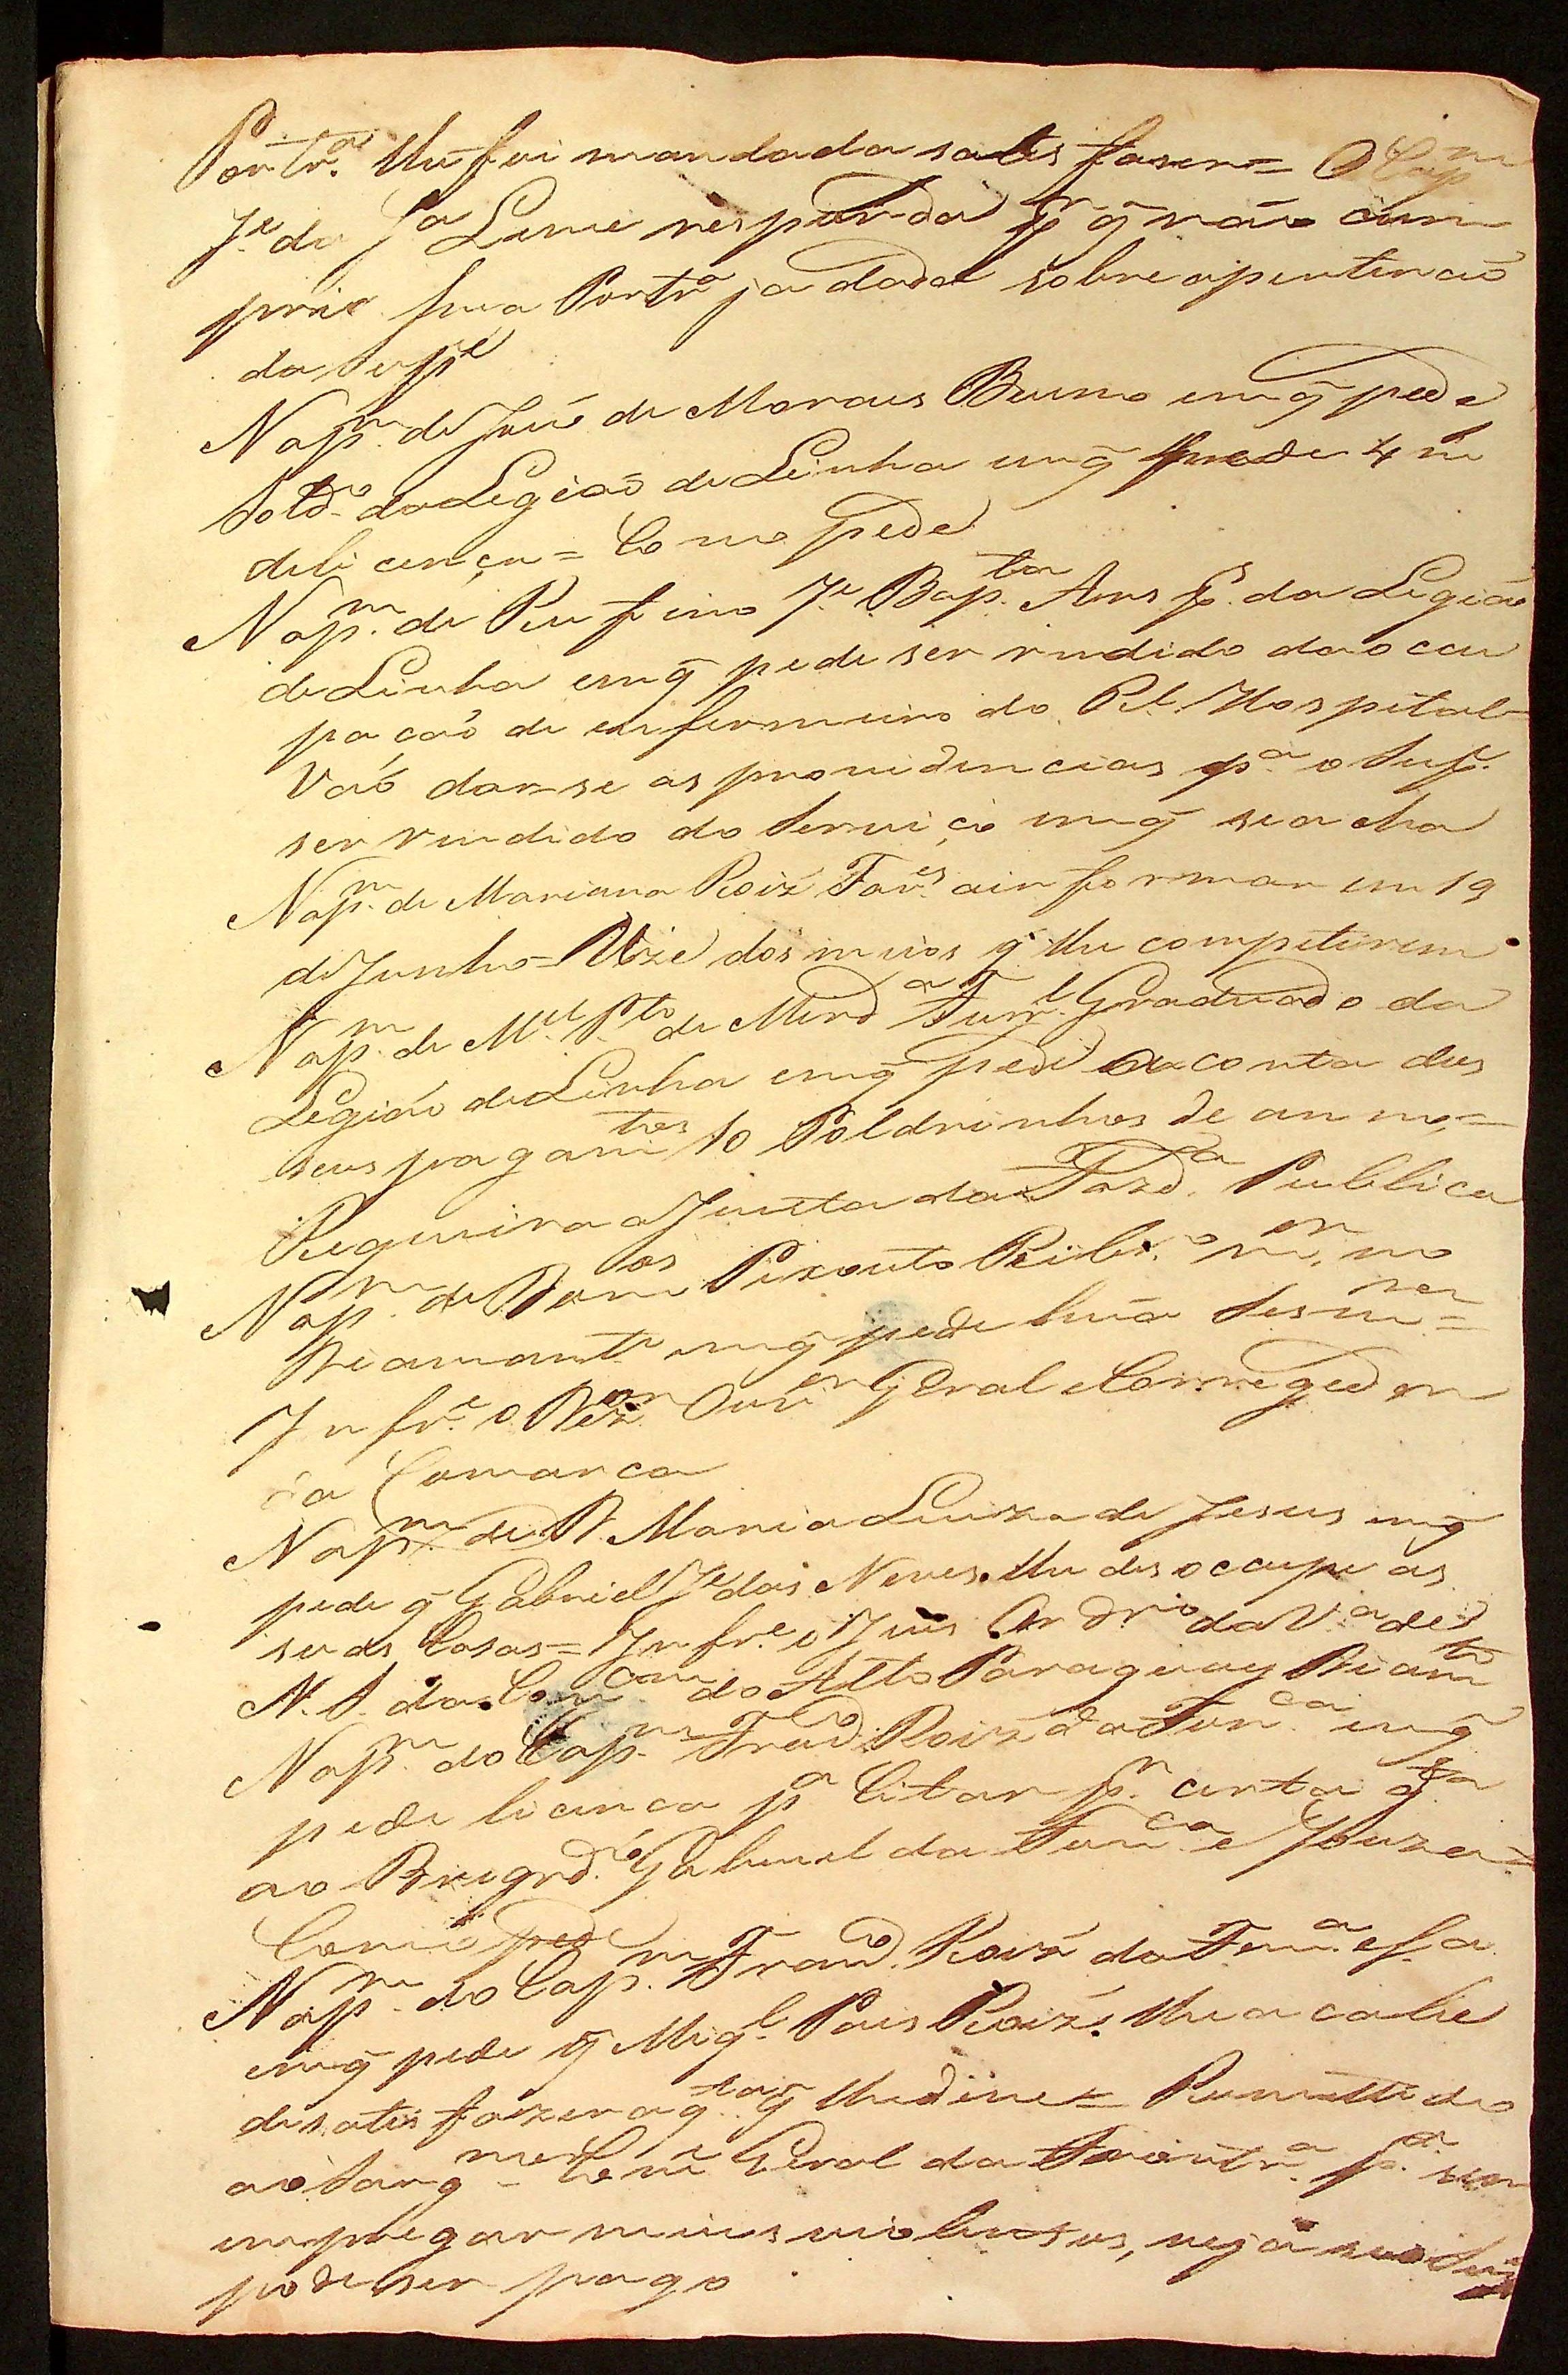 Portr.ª lhe foi mandada satis faser= O Cap.m
J.e da S.ª Leme responda p.r q̃ não cum
prio hua Portr.ª ja dada sobre apertenção
da Supp.e
N ap.m de José de Moraes Bueno em q̃ pede
Sold.o da Legião de Linha em q̃ pede 4 m̃
de licença = Como pede
N ap.m de Rufino J.e Bap.ta Ans p.s da Legião
de Linha em q̃ pede ser rendido da o cou
pação de enfermeiro do R.l Hospital=
Vaõ dar-se as providencias p.ª o Sup.e
ser rendido do serviço em q̃ se acha
N ap.m de Mariana Roiz Tav.es a informar em 19
de Junho= Uze dos meios q̃ lhe competirem
N ap.m de M.el P.to de Mird.ª Furr.l Graduado da
Legião de Linha em q̃ pede a conta dos
seus pagam.tos 10 Poldrinhos de anno=
Requeira a Junta da Fazd.ª Publica
N ap.m de Peixouto Ribr.o m.or no
Diamant.e em q̃ pede hũa Sesm=
Infr.e o Dez.or Ouv.or Geral e Corregedor
da Comarca
N ap.m de D. Maria Luiza de Jesus em q̃
pede q̃ Gabriel J.e das Neves lhe des occupe as
suas Casas= Infr.e o Juis Ordr.io da V.ª de
N. S. da Con.cam do Alto Paraguay Diam.to
N ap.m do Cap.m Fran.co Roiz da Fon.ca em q̃
pede licença p.ª Citar p.r certa q.ta
ao Brigrd.o Gabriel da Fon.ca e Souza=
Como pede
N ap.m do Cap.m Fran.co Roiz da Fon.ª e S.a
em q̃ pede q̃ Mig.l Paes Roiz lhe a cabe
de satis fazer a q.ta q̃ lhe deve= Remettido
ao Sarg. mor Com.e Geral da Frontr.ª p.ª sem
empregar meios violentos, veja
pode ser pago